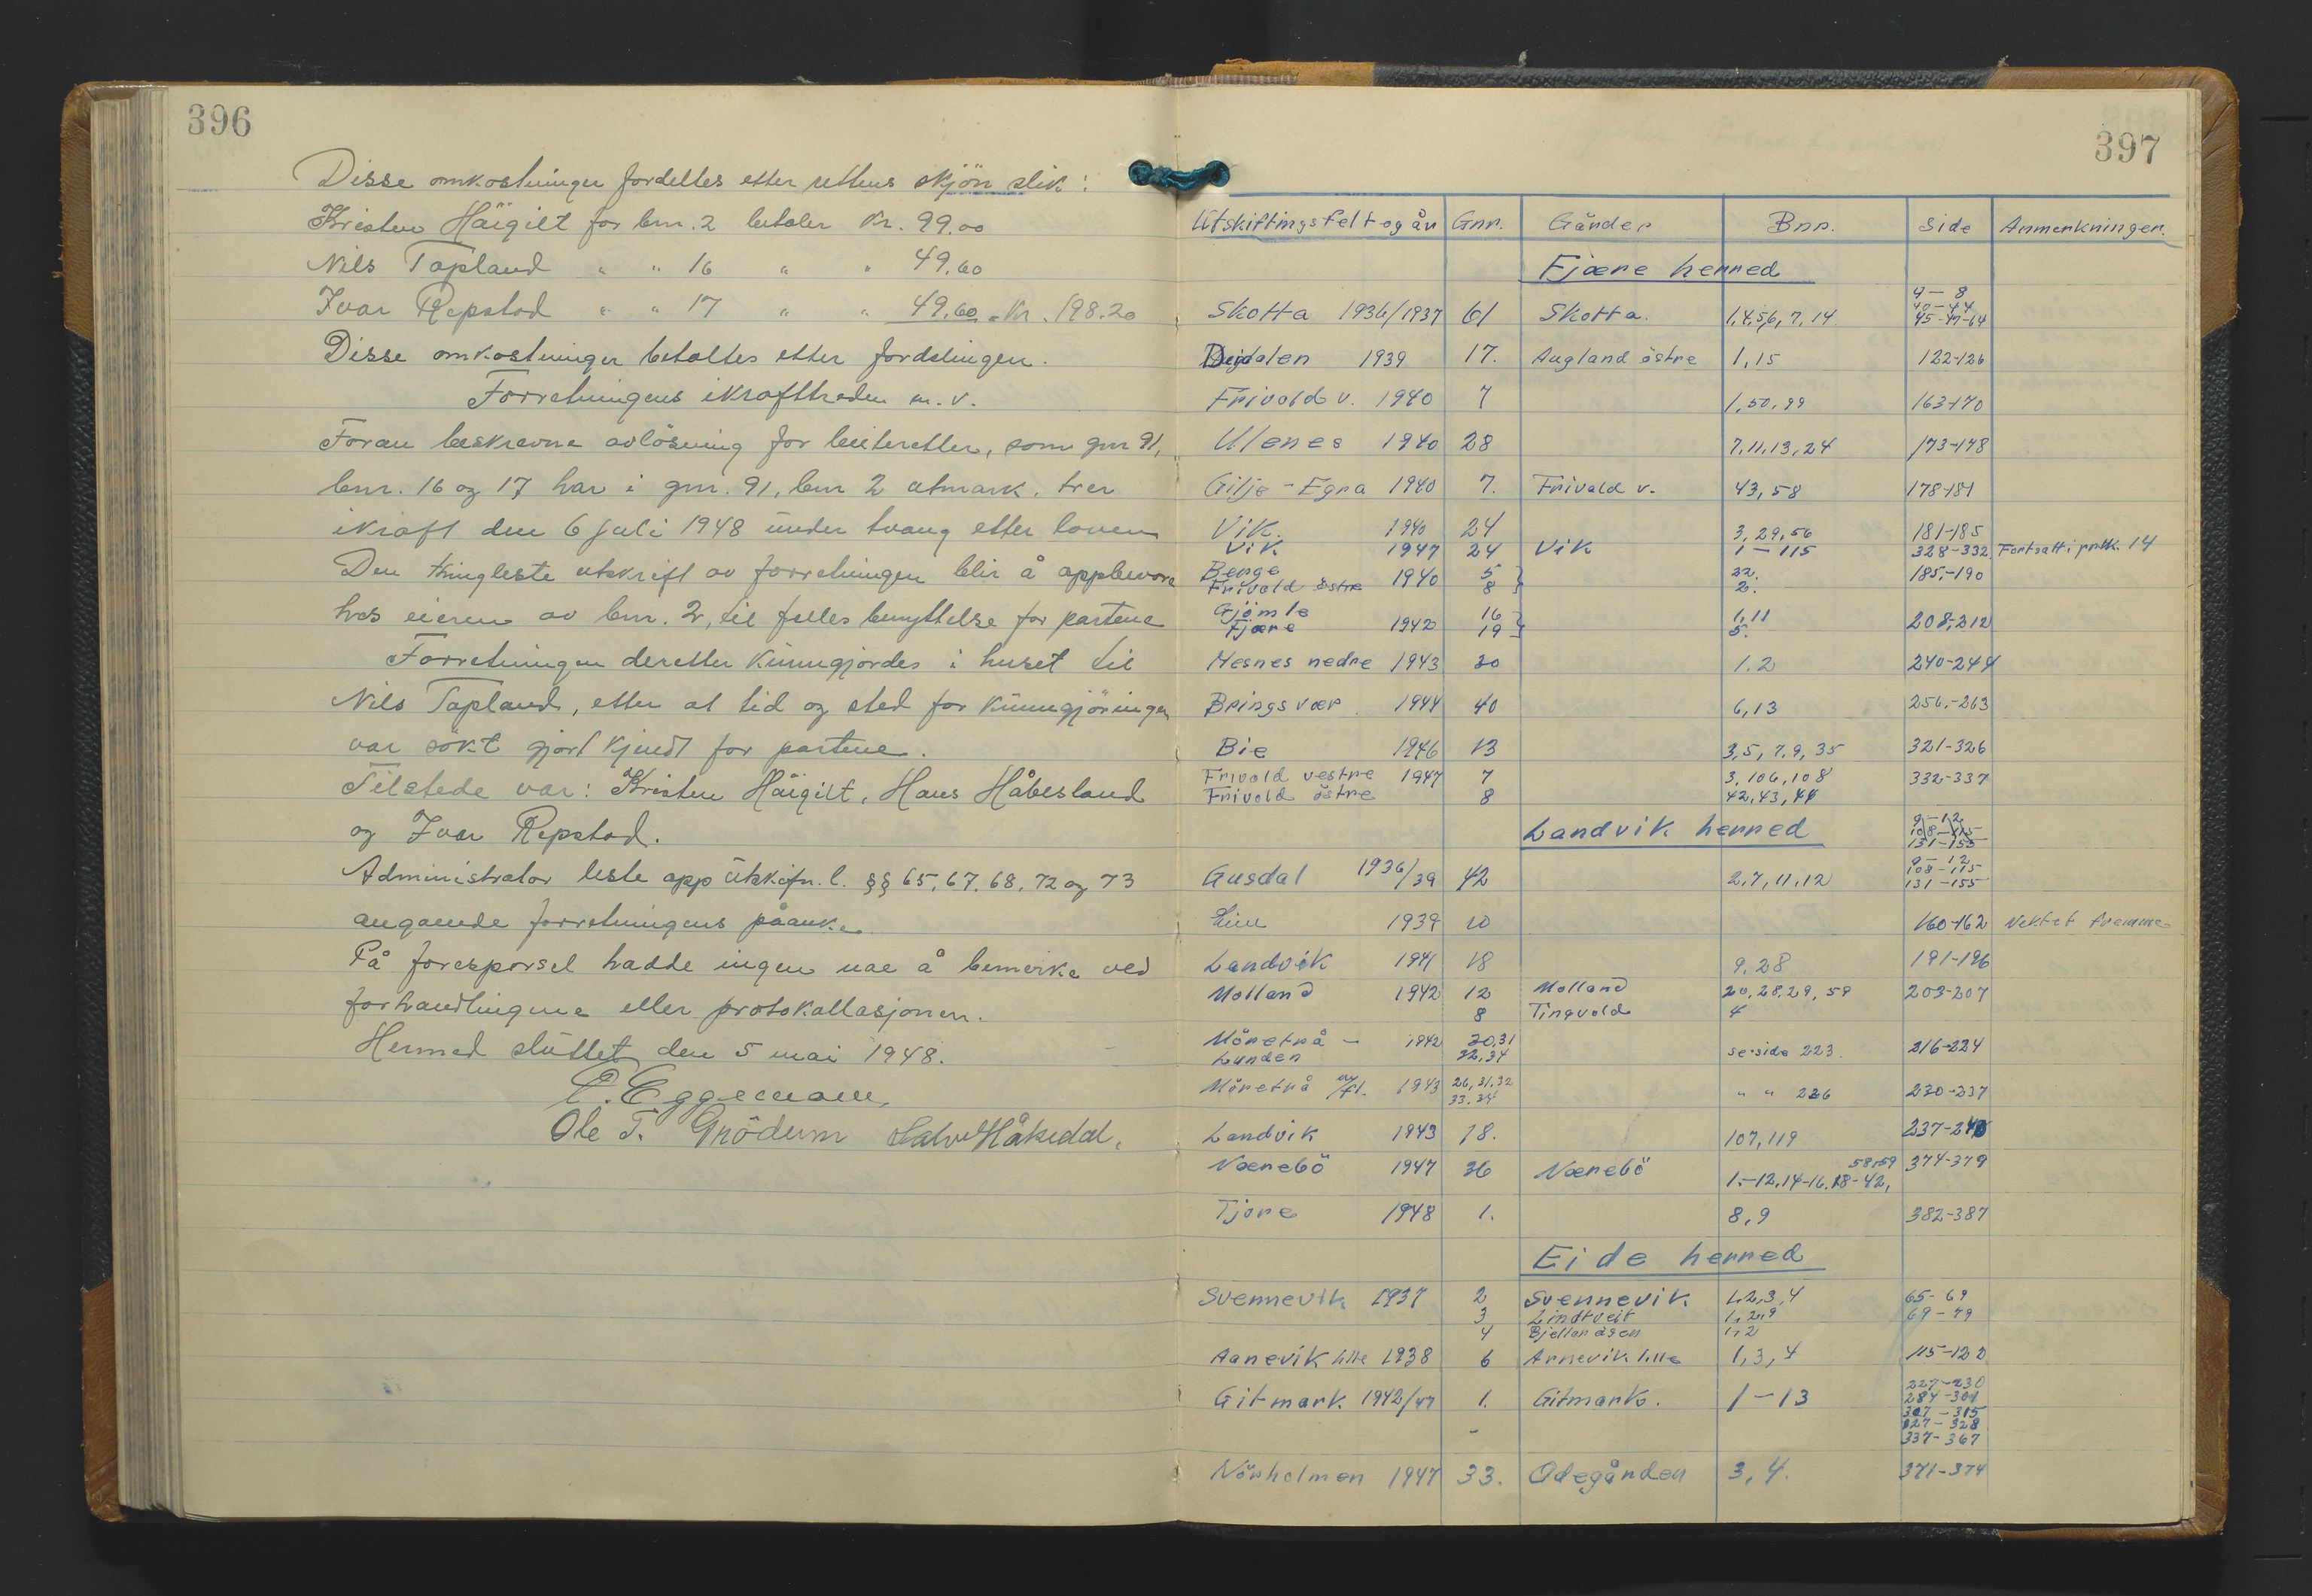 396
Disse omkostninger fordeltes etter rettens skjön slik:
Kristen Häigilt for bnr. 2 betaler kr. 99.00
Nils Topland " " 16 " " 49.60
Ivar Repstad " " 17 " " 49.60 = kr. 198.20
Disse omkostninger betaltes etter fordelingen.
Forretningens ikrafttreden m. v.
Foran beskrevne avlösning for beiteretten, som gnr 91,
bnr. 16 og 17 har i gnr. 91, bnr 2 utmark, trer
ikraft den 6 juli 1948 under tvang etter loven
Den tingleste utskrift av forretningen blir å oppbevare
hos eieren av bnr. 2, til felles benyttelse for partene
Forretningen deretter kunngjordes i huset til
Nils Topland, etter at tid og sted for kunngjöringen
var sökt gjort kjendt for partene.
Tilstede var: Kristen Häigilt, Hans Håbesland
og Ivar Repstad.
Administrator leste opp utskifn. l. §§ 65, 67, 68, 72 og 73
angaaende forretningens påanke.
På forespørsel hadde ingen noe å bemerke ved
forhandlingene eller protokollasjonen.
Hermed sluttet den 5 mai 1948.
E. Eggemoen
Ole T. Grödum Salve Håkedal.
397
Utskiftingsfelt og år Gnr. Gårder Bnr. Side Anmerkninger.
Fjære herred
4 – 8
40 – 44
Skotta 1936/1937 61 Skotta. 1,4,5,6,7,14. 45-47-64
Dugdalen 1939 17. Augland östre 1,15 122-126
Frivold v. 1940 7 1,50,99 163-170
Ulenes 1940 28 7,11,13,24 173-178
Gilje - Egra 1940 7. Frivold v. 43,58 178-181
Vik. 1940 24 3,29,56 181-185
Vik 1947 24 Vik 1 – 115 328-332 Fortsatt i protk. 14
Berge 1940 5 22. 185,-190
Frivold östre 8 2.
Gjömle 1942 16 1,11 208,212
Fjære 19 5.
Hesnes nedre 1943 30 1.2 240-244
Bringsvær 1944 40 6,13 256,-263
Bie 1946 13 3,5,7,9,35 321-326
Frivold vestre 1947 7 3,106,108 332-337
Frivold östre 8 42,43,44
Landvik herred
9 – 12
108 – 115
131 – 155
9 – 12
108 – 115
Gusdal 1936/39 42 2,7,11,12 131 – 155
1939 20 160-162 Nektet fremme
Landvik 1941 18 9,28 191-196
Molland 1942 12 Molland 20,28,29,59 203-207
8 Tingvold 4
Möretrå – 1942 30,31 se side 223. 216-224
Lunden 32,34
Möretrå m/fl. 1943 26,31,32 " " 236 230-237
33.34
Landvik 1943 18. 107,119 237-240
Nærebö 1947 36 Nærebö 1.-12,14-16,18-42, 58,59 374-379
Tjore 1948 1. 8,9 382-387
Eide herred
Svennevik 1937 2 Svennevik 1,2,3,4 65-69
3 Lindtveit 1,2,9 69-79
4 Bjellandsåsen 1,2
Aanevik lille 1938 6 Annevik lille 1,3,4 115-122
Gitmark 1942/47 1. Gitmark. 1 – 13 227-230
284-301
307 – 315
327 – 328
337 – 367
Nörholmen 1947 33. Ödegården 3,4. 371-374